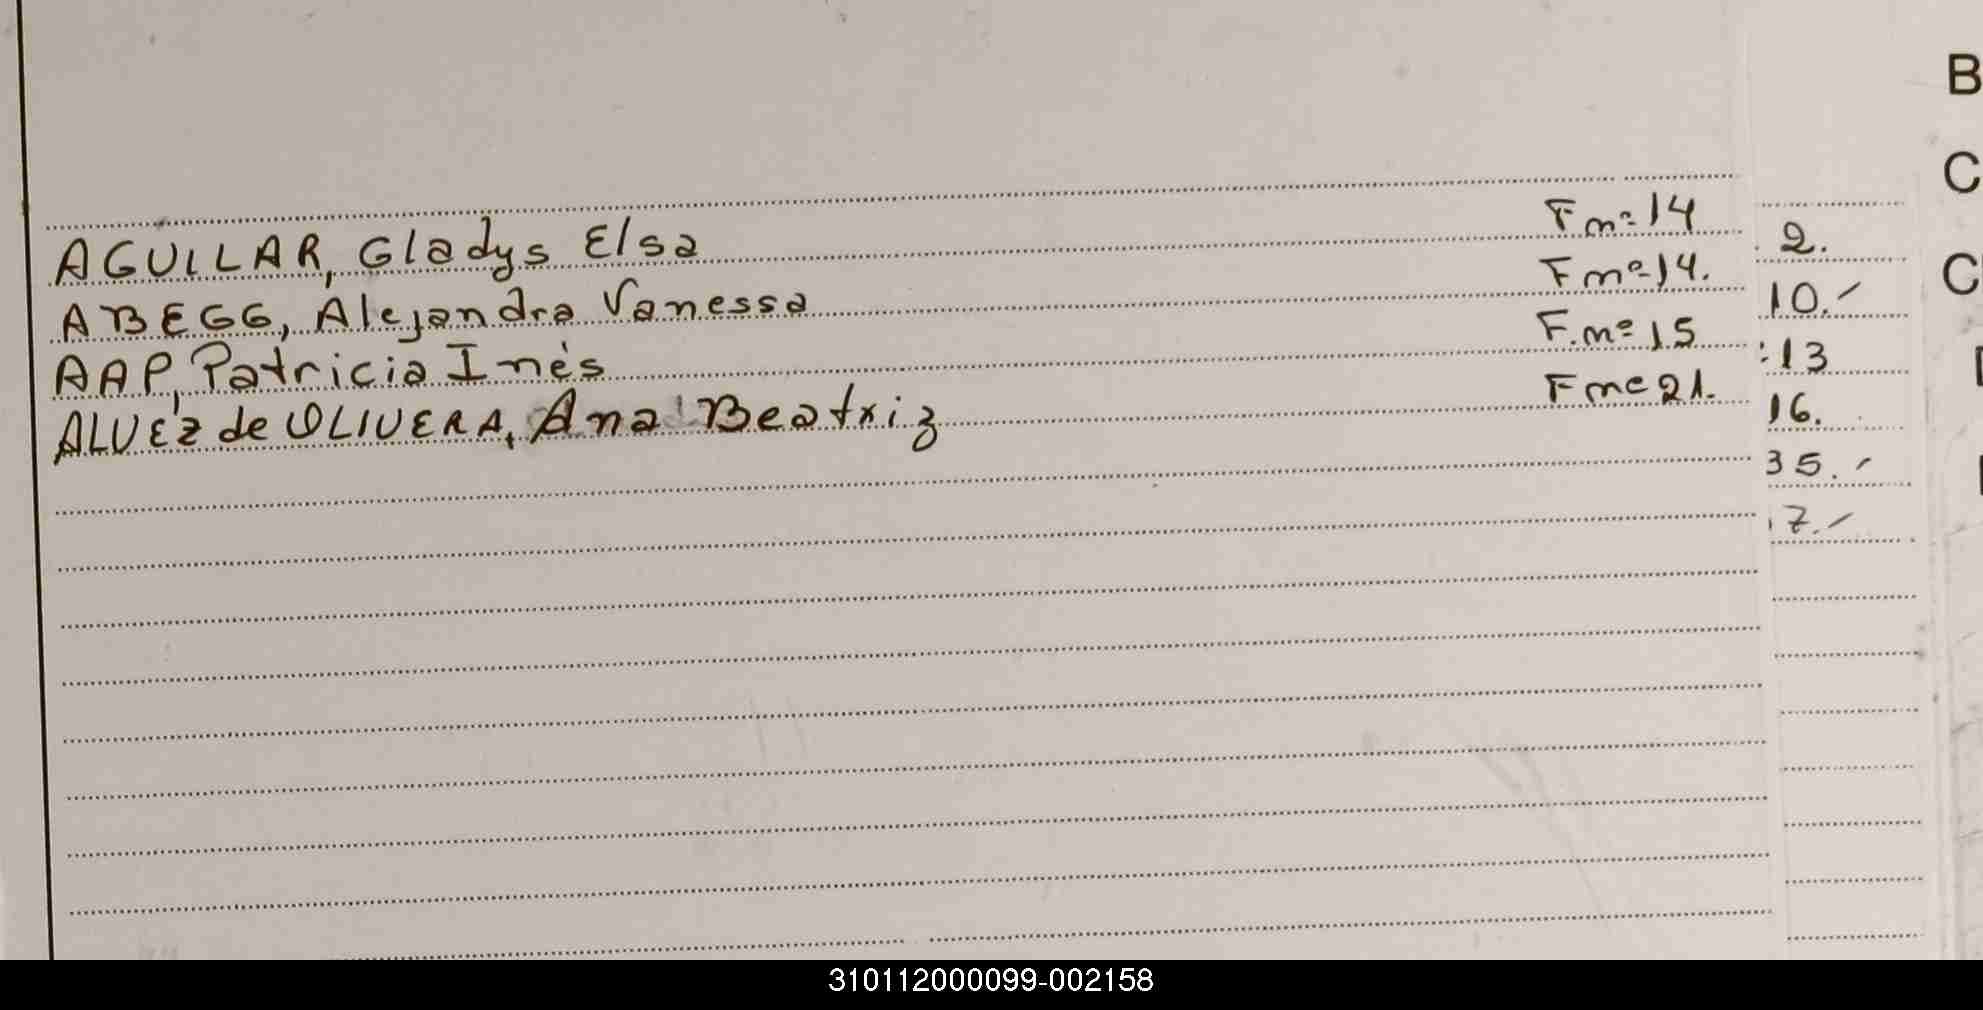 AGUILAR, Gladys Elsa F nº 14
ABEGG, Alejandra Vanessa F nº 14.
AAP, Patricia Inés F. nº 15
ALVEZ de OLIVERA, Ana Beatriz F nº 21.
2.
10.-
13
16.
35.-
7.-
B
C
C
310112000099-002158